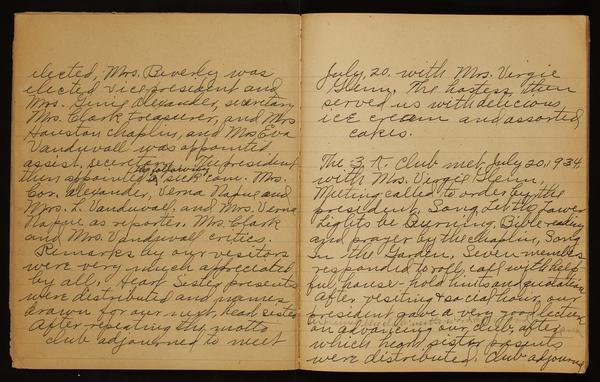 elected, Mrs. Beverly was
elected vice-president and
Mrs. Alexander, secretary
Mrs. Clark treasurer, and Mrs
Houston chaplin, and Mrs Eva
Vanduvall was appointed
assist. secretary. The president
then appointed the following sick com. Mrs.
Cor. Alexander, Verna Napue and
Mrs. L. Vanduvall, and Mrs. Verna
Napue as reporter. Mrs. Clark
and Mrs. Vanduvall critics.
Remarks by our visitors
were very much appreciated
by all. Heart Sister presents
were distributed and names
drawn for our next heart sister
After repeating the motto
club adjourned to meet
July, 20. with Mrs. Virgie
Glenn. The hostess then
served us with delicious
ice cream and assorted
cakes.
The 3. R. Club met July 20, 1934
with Mrs. Virgie Glenn,
Meeting called to order by the
president. Song Let the Lower
Lights be Burning, Bible reading
and prayer by the chaplin, Song
In the Garden. Seven members
responded to roll call with help-
ful house-hold hints and quotations
After visiting & social hour, our
president gave a very good lecture
in advancing our club, after
which heart sister presents
were distributed. Club adjourned